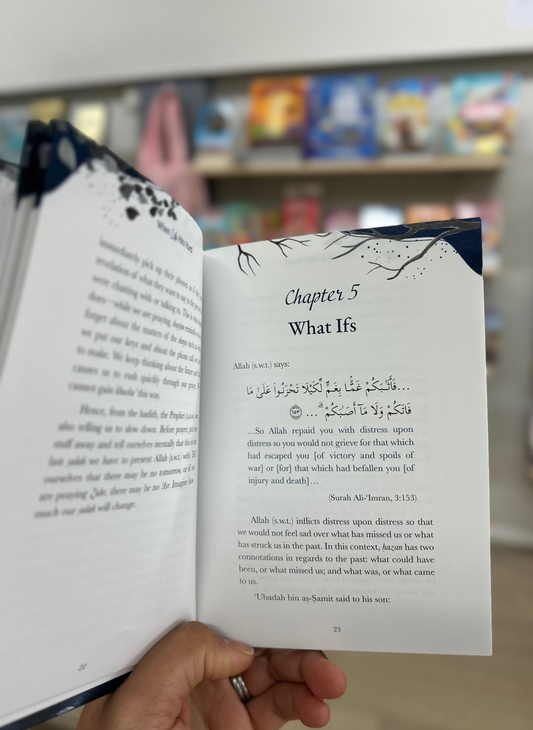 immediately pick up their phones as if they
revelation of what they want to say to the person
were chatting with or talking to. This is what
does—while we are praying,
forget about the matters of the
we put our keys and about the phone call we
to make. We keep thinking about the future and
causes us to rush quickly through our prayer
cannot gain khushuʿ this way.
Hence, from the hadith, the Prophet (s.a.w.) was
also telling us to slow down. Before prayer, put
stuff away and tell ourselves mentally that this is the
last salah we have to present Allah (s.w.t.) with. Tell
ourselves that there may be no tomorrow, or if we
are praying there may be no ʿAsr. Imagine how
much our salah will change.
22
Chapter 5
What Ifs
Allah (s.w.t.) says:
...فَأَثَـٰبَكُمْ غَمًّۢا بِغَمٍّ لِّكَيْلَا تَحْزَنُوا۟ عَلَىٰ مَا
فَاتَكُمْ وَلَا مَآ أَصَـٰبَكُمْ ۗ ... ١٥٣
...So Allah repaid you with distress upon
distress so you would not grieve for that which
had escaped you [of victory and spoils of
war] or [for] that which had befallen you [of
injury and death]...
(Surah Ali-ʿImran, 3:153)
Allah (s.w.t.) inflicts distress upon distress so that
we would not feel sad over what has missed us or what
has struck us in the past. In this context, hazan has two
connotations in regards to the past: what could have
been, or what missed us; and what was, or what came
to us.
ʿUbadah bin aṣ-Ṣamit said to his son:
23